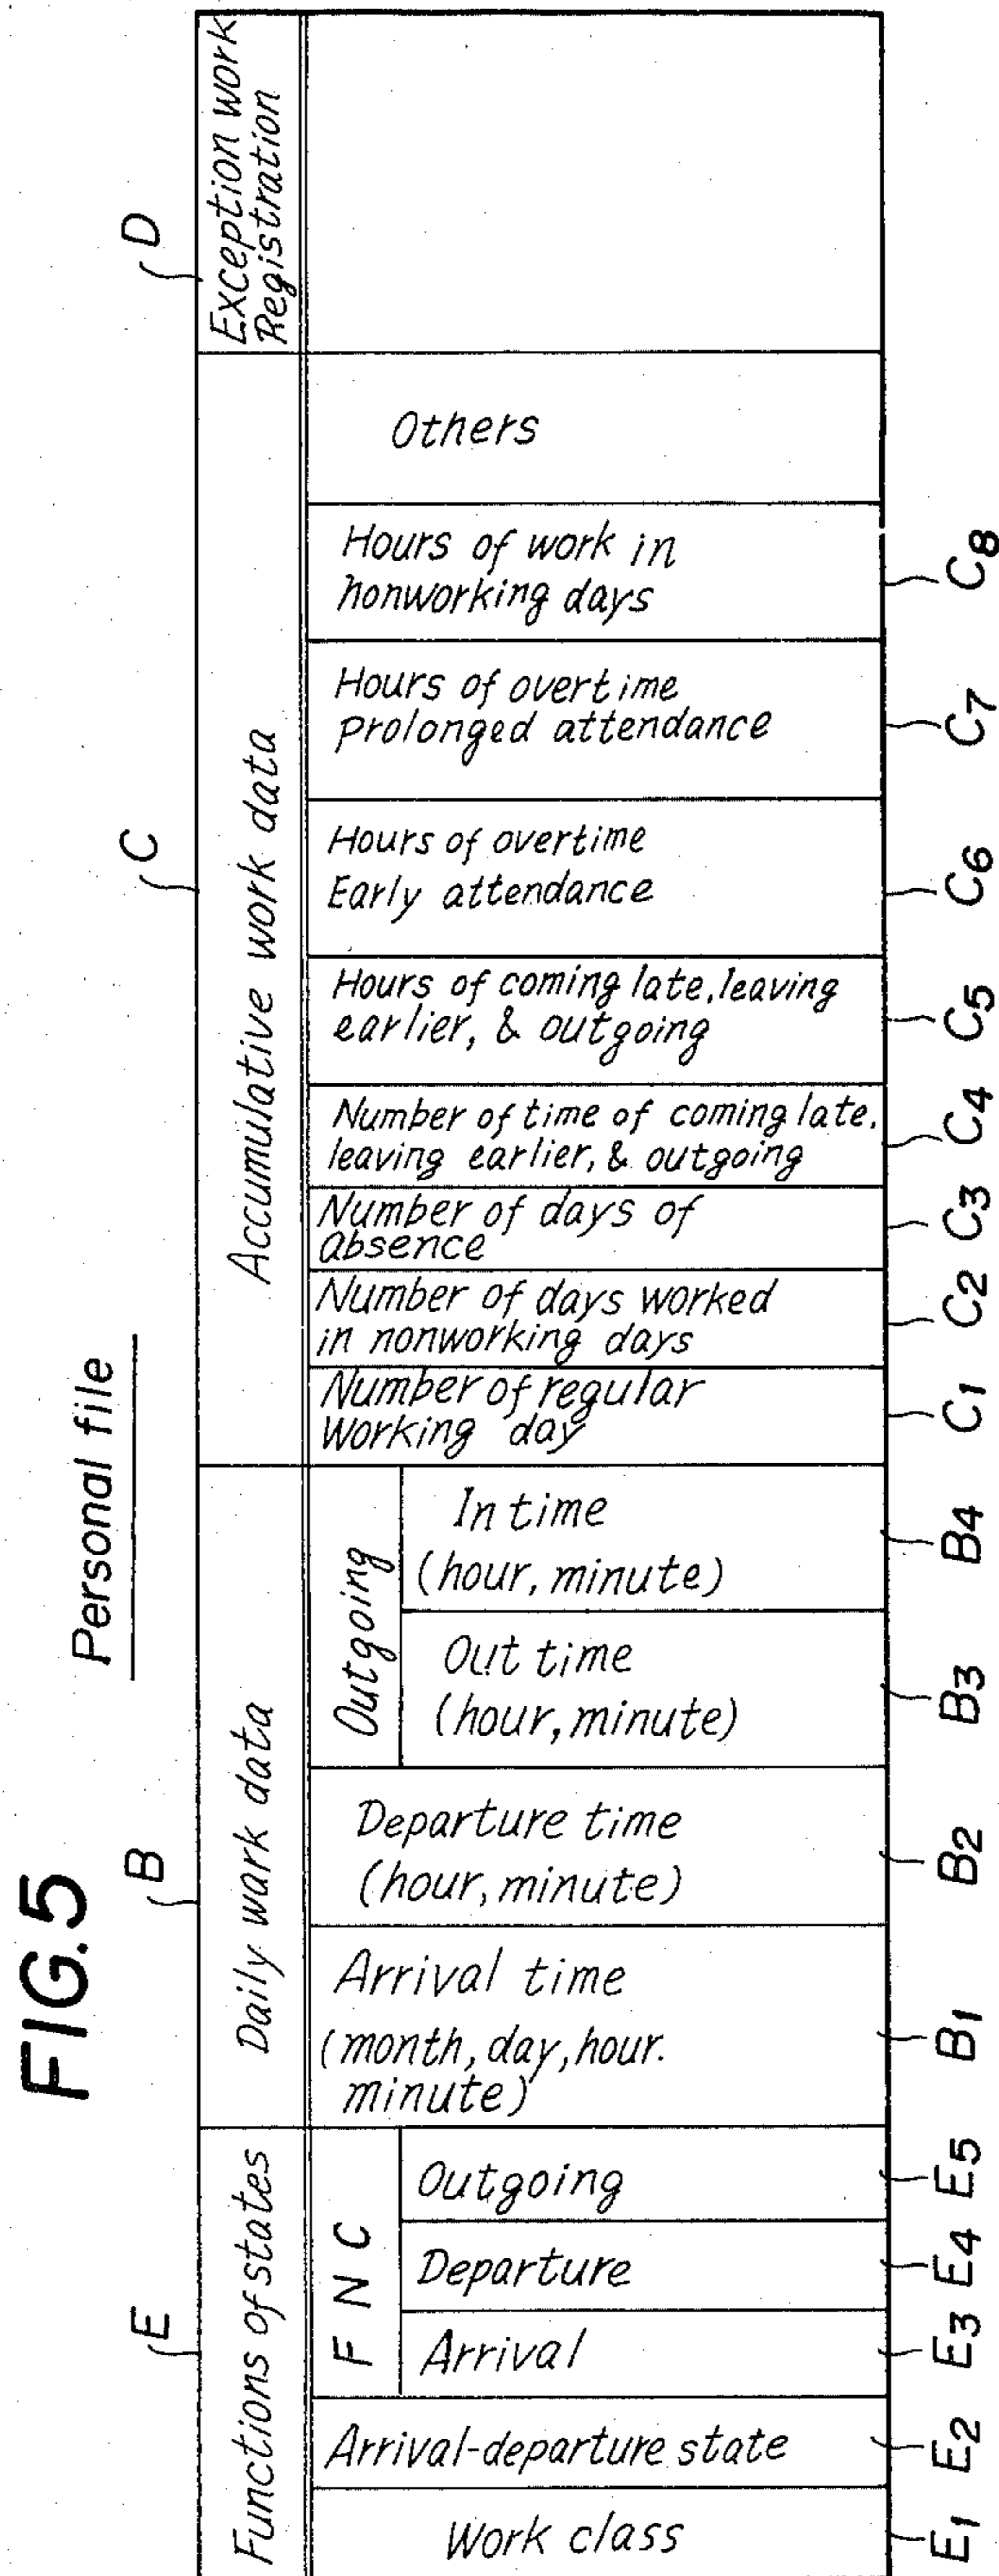 FIG. 5
Personal file
E
Functions of states
Work class
E1
Arrival-departure state
E2
F N C
Arrival
E3
Departure
E4
Outgoing
E5
B
Daily work data
Arrival time
(month, day, hour.
minute)
B1
Departure time
(hour, minute)
B2
Outgoing
Out time
(hour, minute)
B3
In time
(hour, minute)
B4
C
Accumulative work data
Number of regular
Working day
C1
Number of days worked
in nonworking days
C2
Number of days of
absence
C3
Number of time of coming late,
leaving earlier, & outgoing
C4
Hours of coming late, leaving
earlier, & outgoing
C5
Hours of overtime
Early attendance
C6
Hours of overtime
prolonged attendance
C7
Hours of work in
nonworking days
C8
Others
D
Exception work
Registration